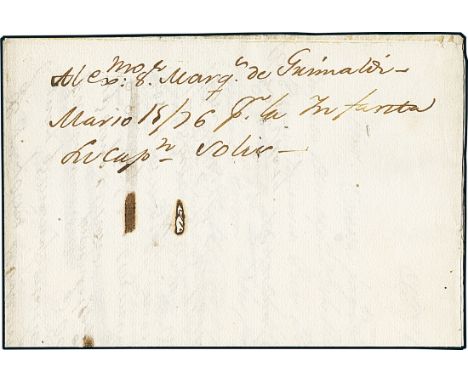 Al ex.mo S.r Marq.s de Grimaldi
Marzo 15/76 P.r la Infanta
cap.n Solis